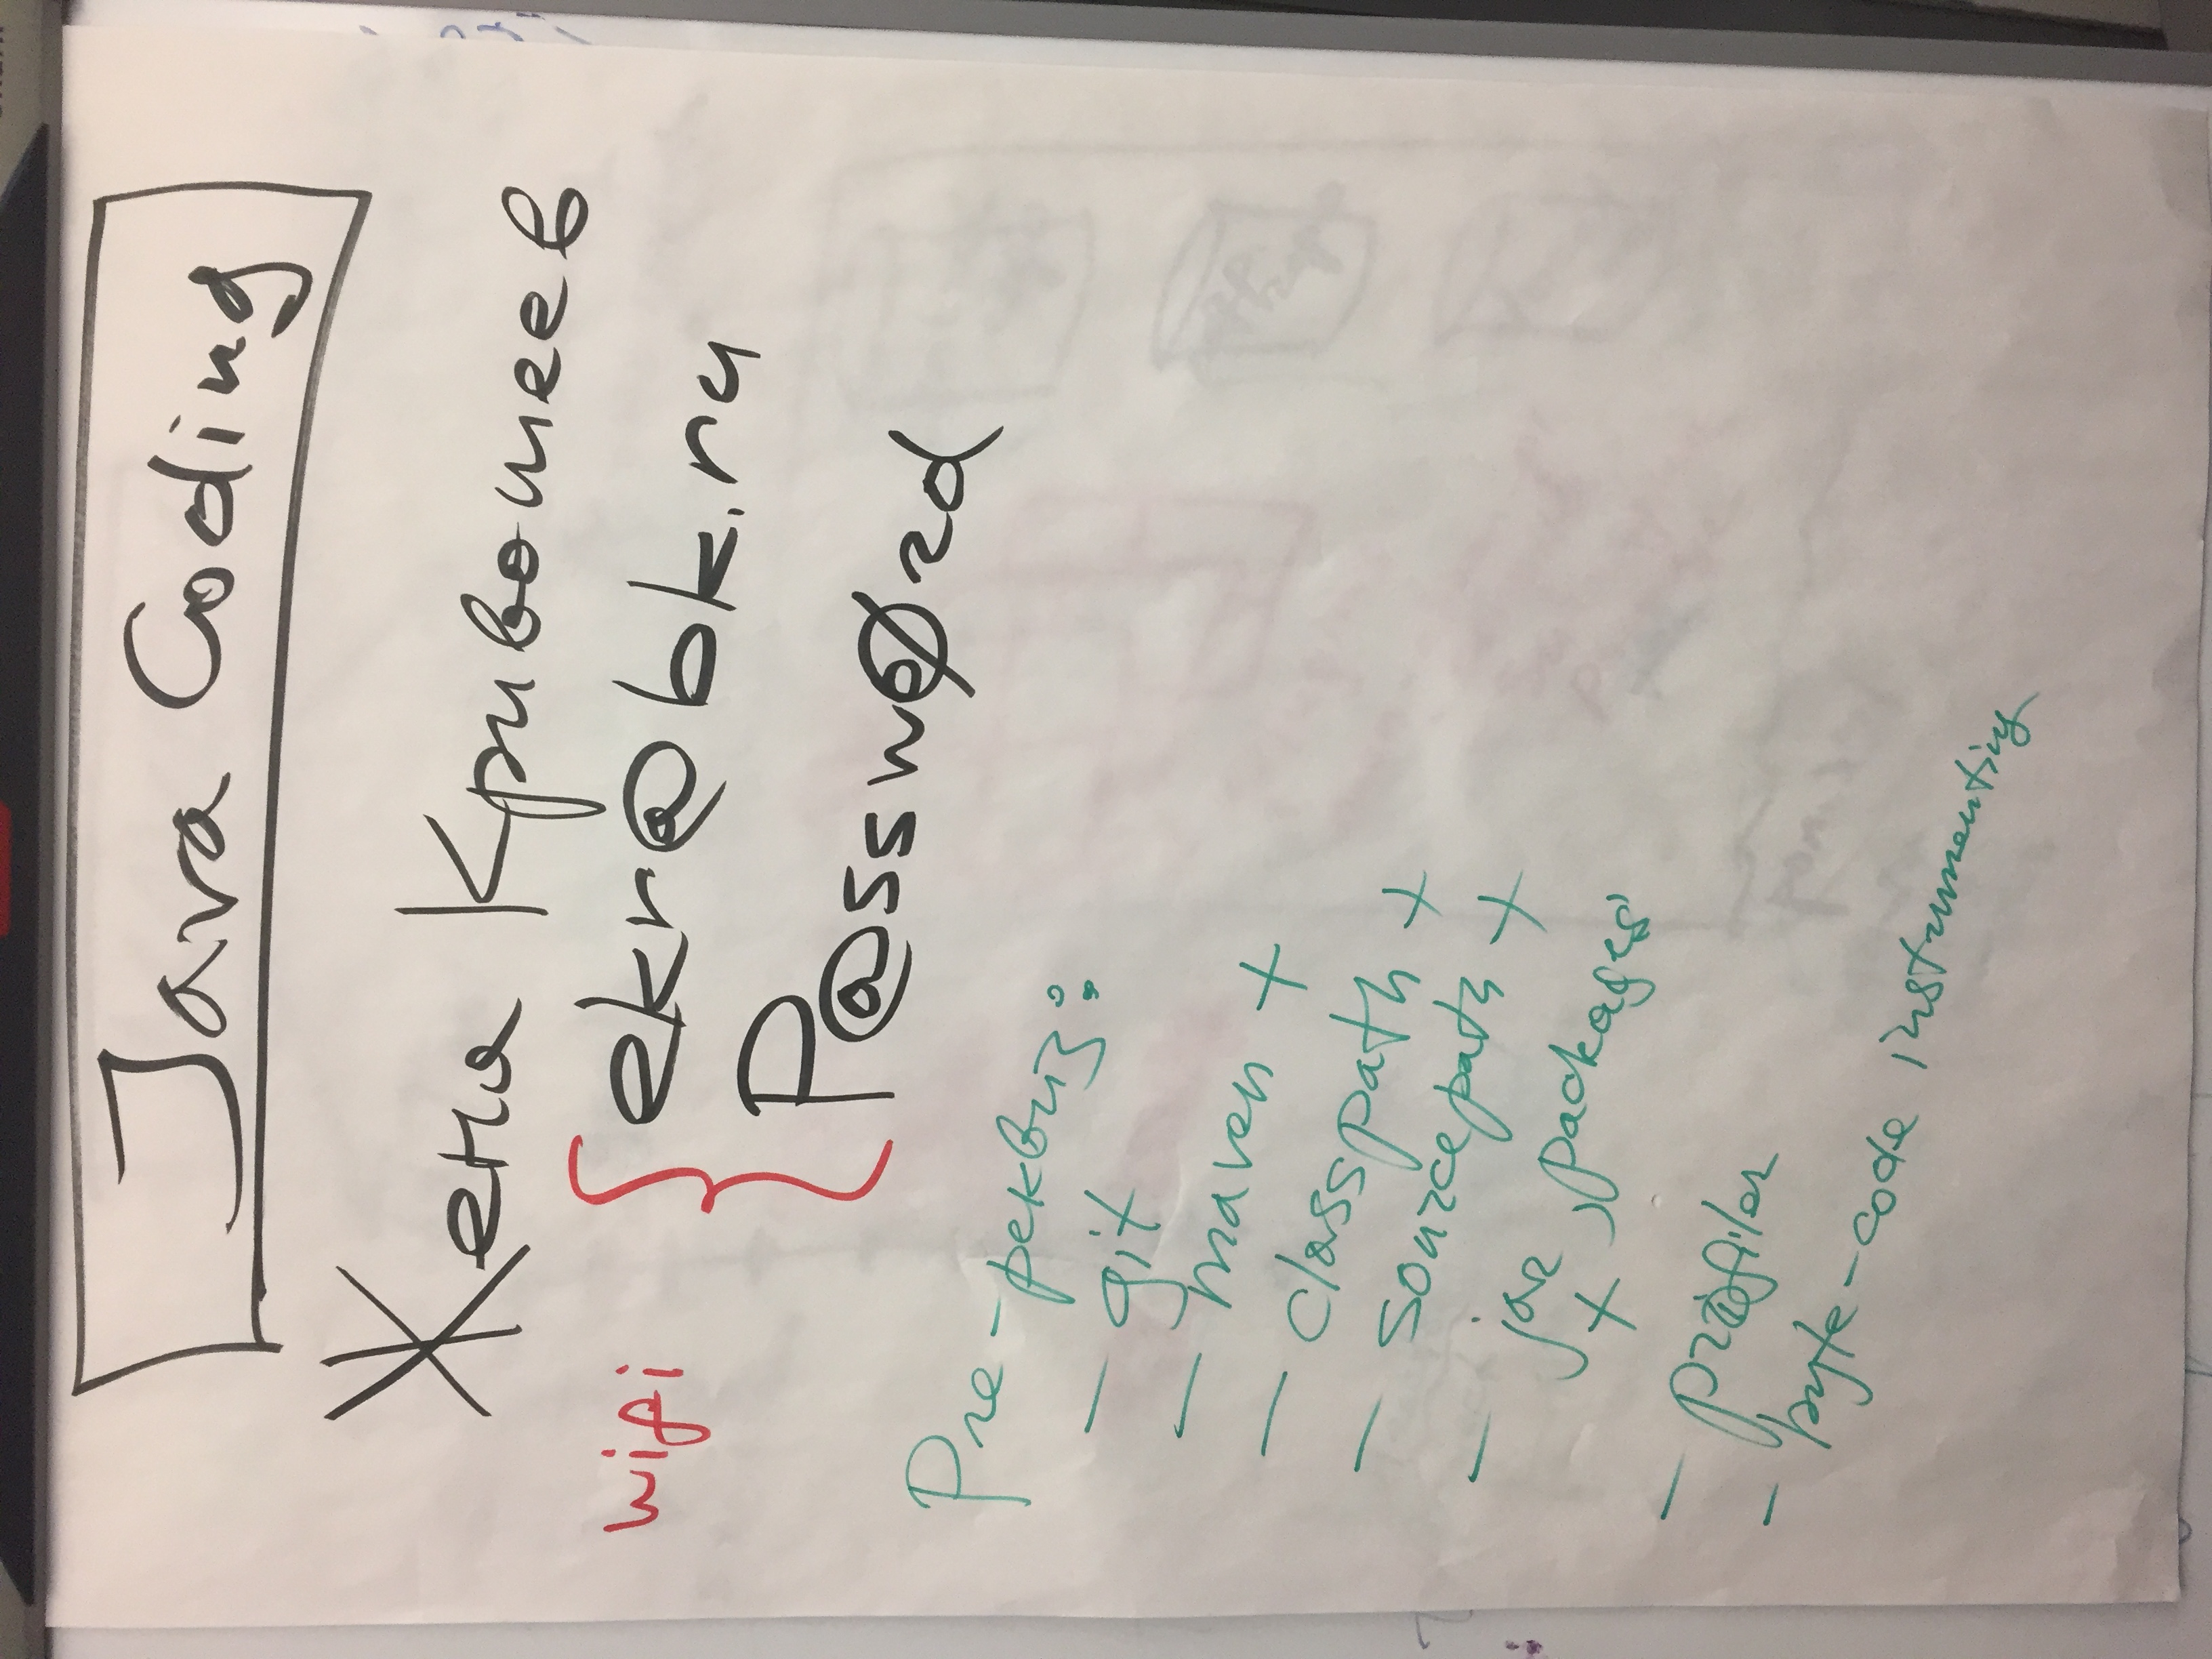 Java Coding
Женя Кривошеев
wifi
ekr@bk.ru
P@ssw0rd
Pre-реквиз:
- git
- maven +
- classpath +
- sourcepath +
- jar, packages
+
- profiler
- byte-code instrumenting